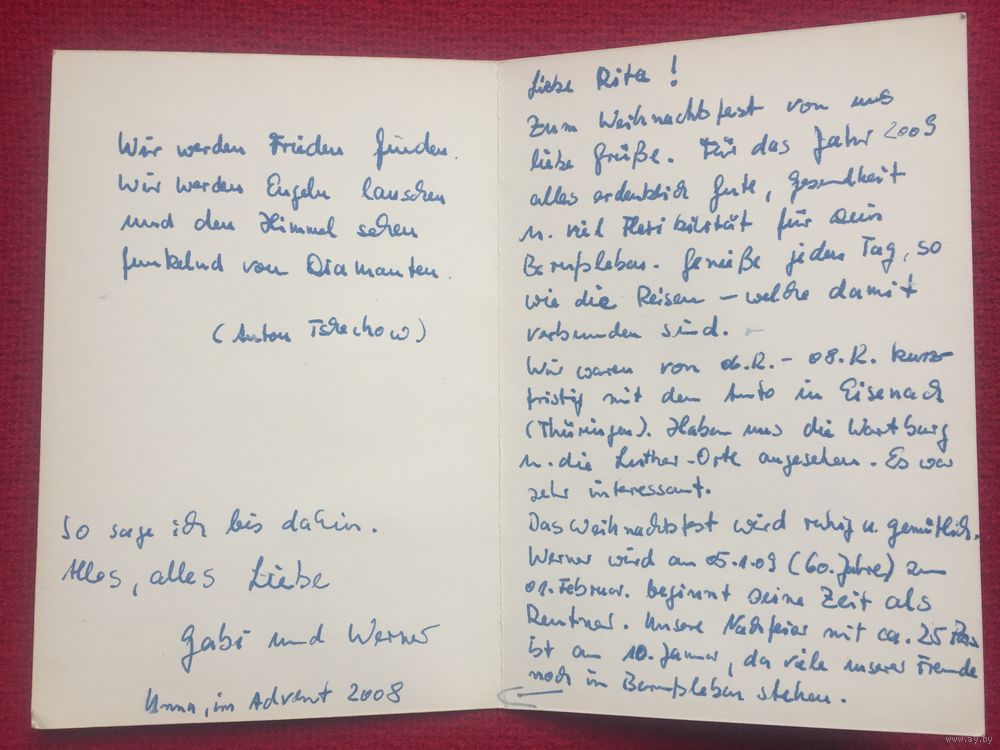 Wir werden Frieden finden.
Wir werden Engeln lauschen
und den Himmel sehen
funkelnd von Diamanten.
(Anton Tschechow)
So sage ich bis dahin.
Alles, alles Liebe
Gabi und Werner
Unna, im Advent 2008
Liebe Rita!
Zum Weihnachtsfest von uns
liebe Grüße. Für das Jahr 2009
alles erdenklich Gute, Gesundheit
u. viel Flexibilität für Dein
Berufsleben. Genieße jeden Tag, so
wie die Reisen – welche damit
verbunden sind.
Wir waren von 06.12. – 08.12. kurz-
fristig mit dem Auto in Eisenach
(Thüringen). Haben uns die Wartburg
u. die Luther-Orte angesehen. Es war
sehr interessant.
Das Weihnachtsfest wird ruhig u. gemütlich.
Werner wird am 05.1.09 (60. Jahre) zum
01. Februar. beginnt seine Zeit als
Rentner. Unsere Nachfeier mit ca. 25 Pers
ist am 10. Januar, da viele unserer Freunde
noch im Berufsleben stehen.
www.ay.by